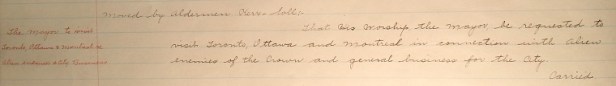 Moved by Aldermen
The Mayor to visit
Toronto, Ottawa & Montreal re
Alien enemies & City Business
That His Worship the Mayor be requested to
visit Toronto, Ottawa and Montreal in connection with Alien
enemies of the Crown and general business for the City.
Carried